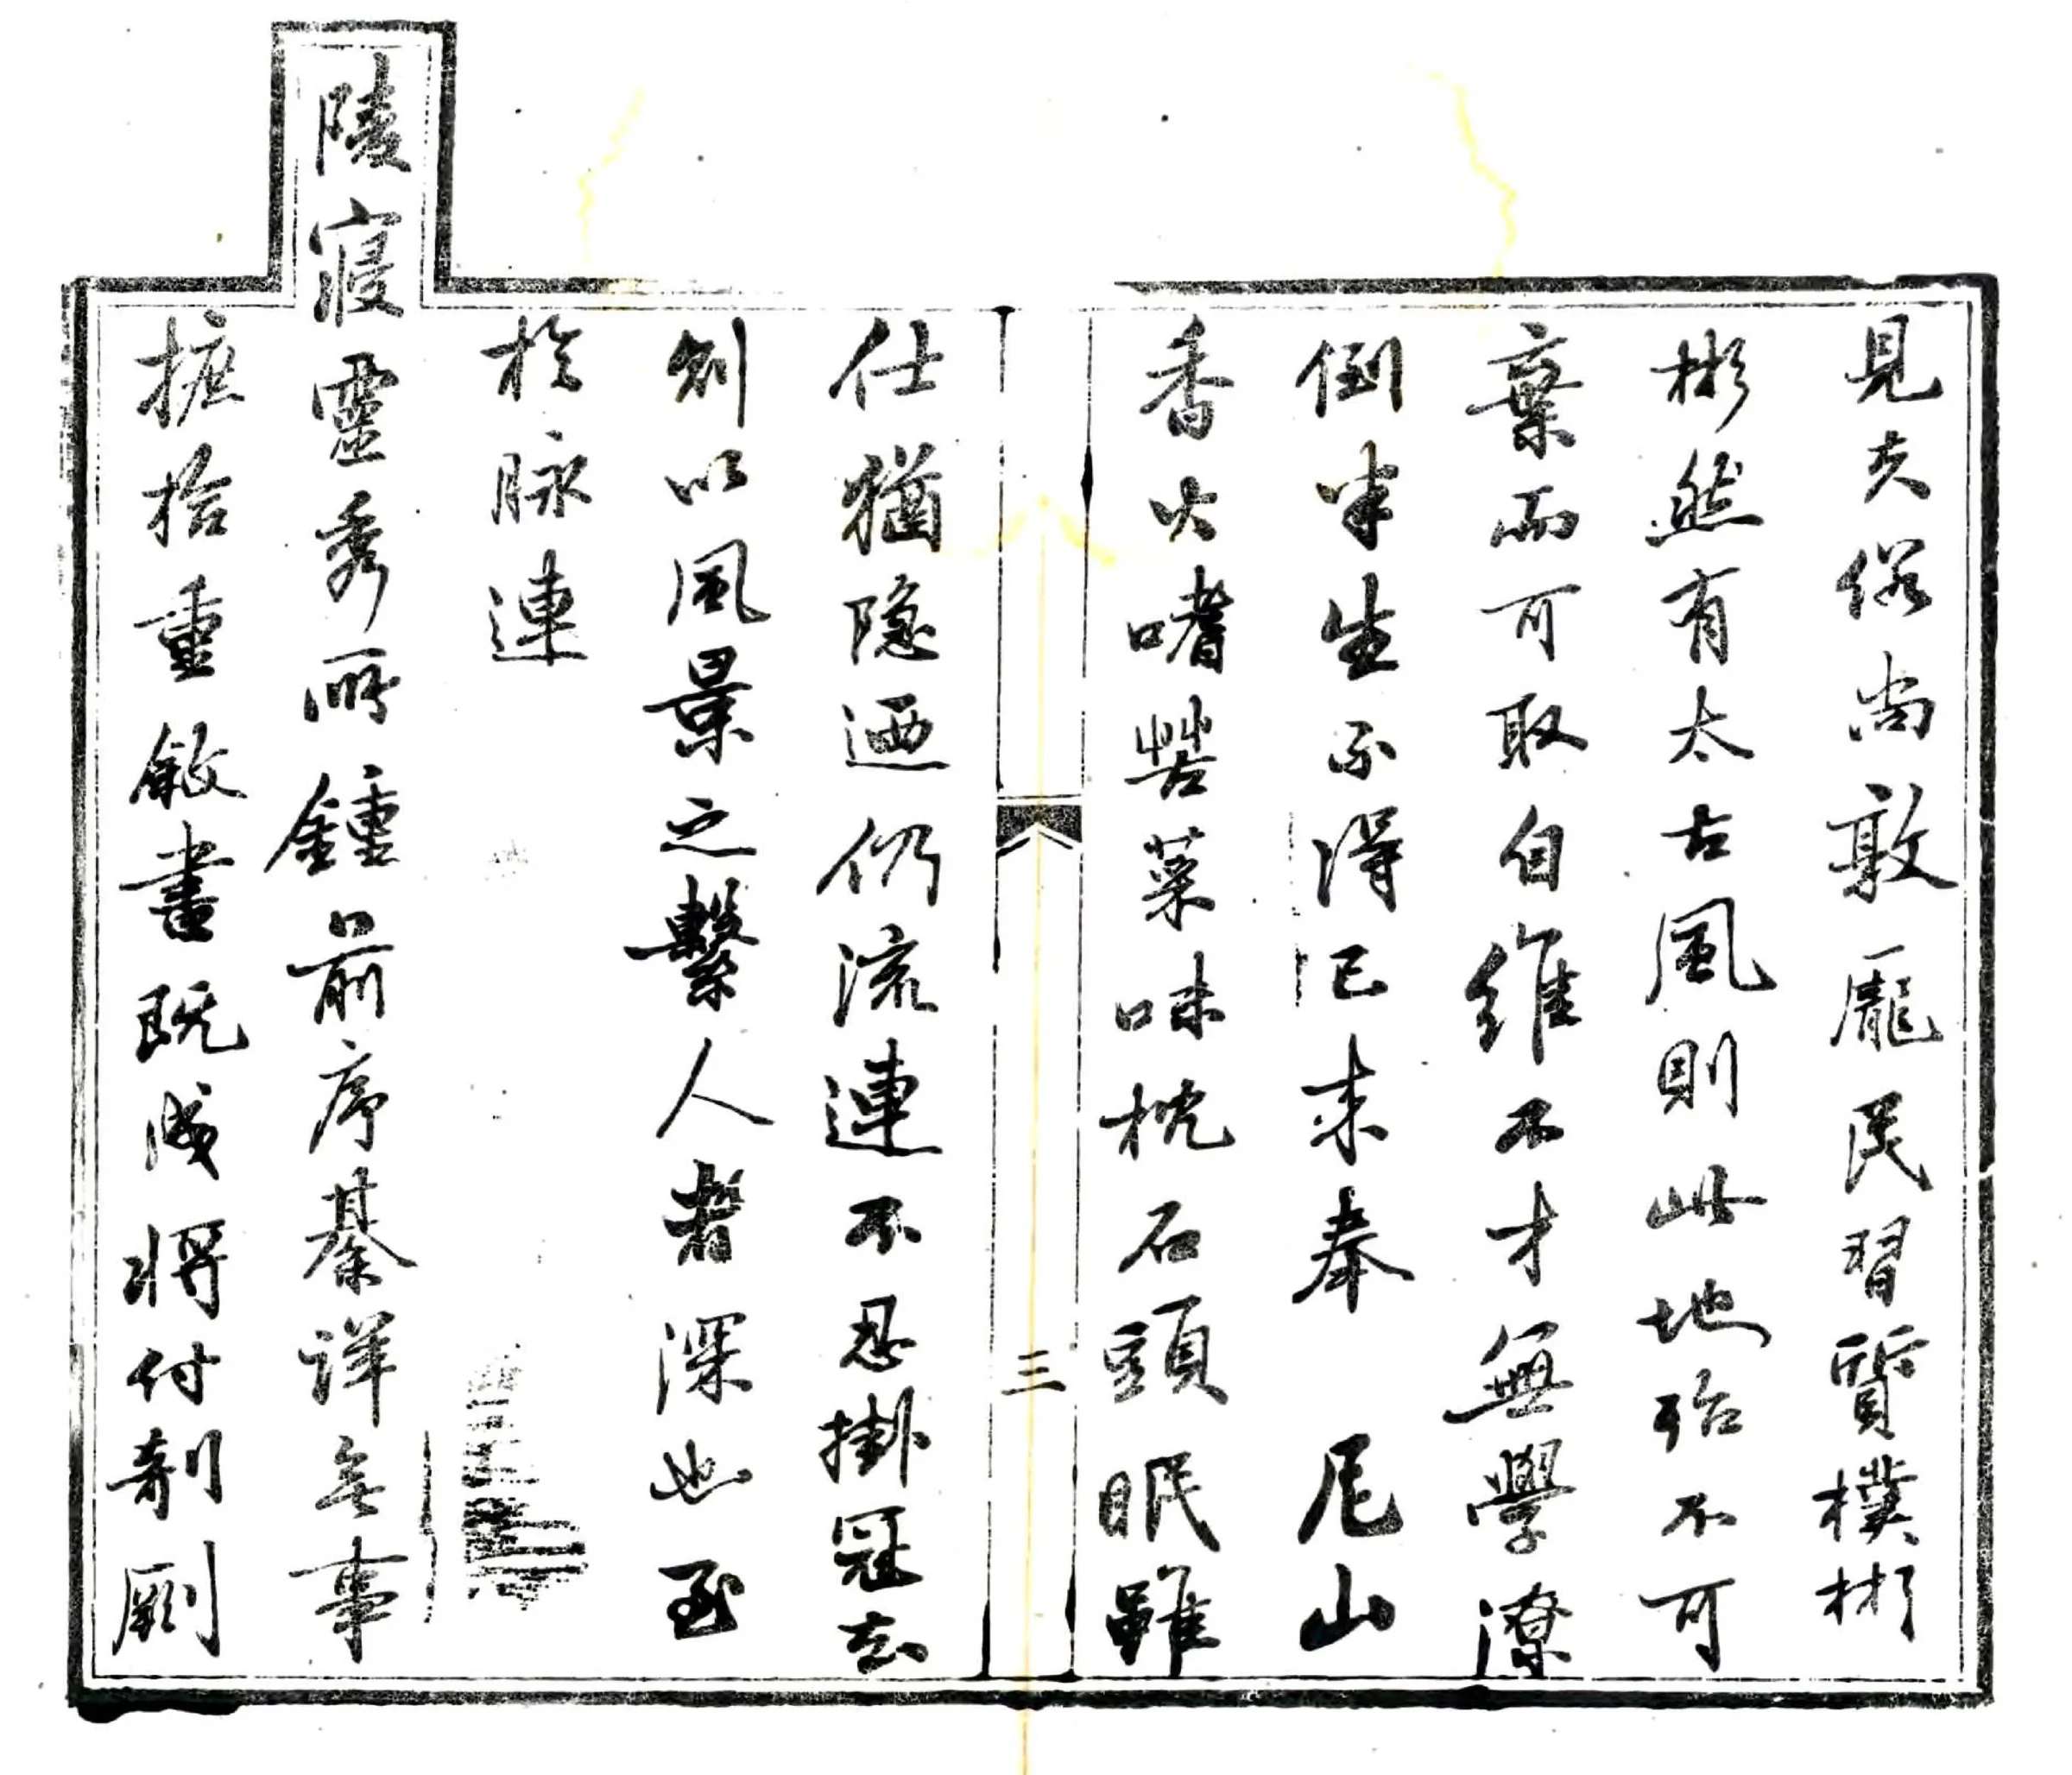 見夫俗尚敦龐民習質樸彬
彬然有太古風則此地殆不可
棄而可取自維不才無學潦
倒半生不得已來奉　尼山
香火嗜苦菜味枕石頭眠雖
三
仕猶隱迺仍流連不忍掛冠去
則以風景之繫人者深也至
於脉連
陵寢靈秀所鍾前序綦詳無事
摭拾重敘書既成將付剞劂